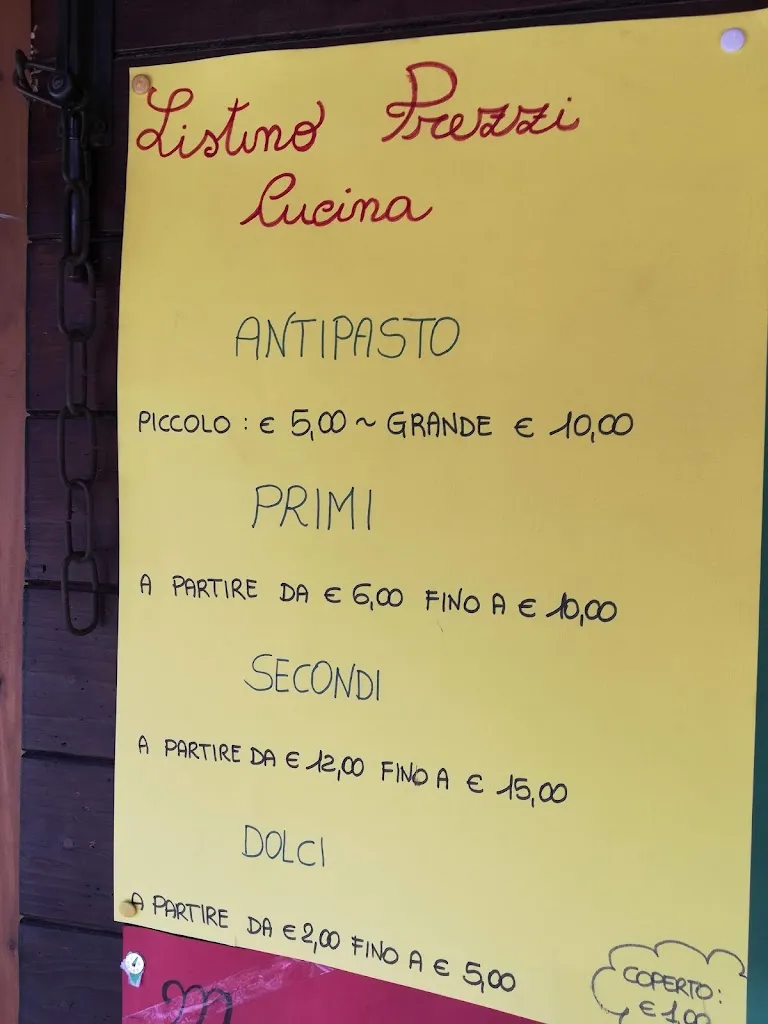 Listino Prezzi
Cucina
ANTIPASTO
PICCOLO : € 5,00 ~ GRANDE € 10,00
PRIMI
A PARTIRE DA € 6,00 FINO A € 10,00
SECONDI
A PARTIRE DA € 12,00 FINO A € 15,00
DOLCI
A PARTIRE DA € 2,00 FINO A € 5,00
COPERTO:
€ 1,00